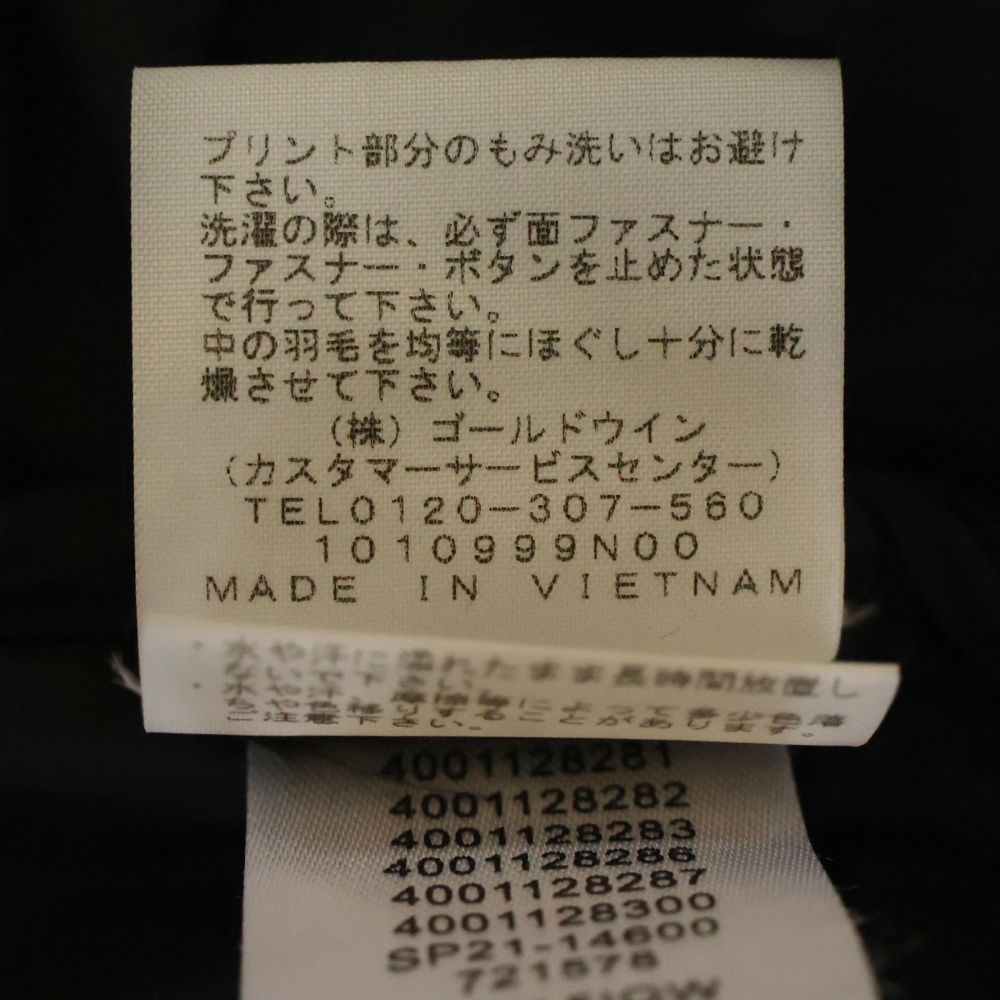 プリント部分のもみ洗いはお避け
下さい。
洗濯の際は、必ず面ファスナー・
ファスナー・ボタンを止めた状態
で行って下さい。
中の羽毛を均等にほぐし十分に乾
燥させて下さい。
(株)ゴールドウイン
(カスタマーサービスセンター)
TEL0120-307-560
1010999N00
MADE IN VIETNAM
・水や汗に濡れたまま長時間放置し
ないで下さい。
・水や汗
ご注意下さい。
4001128281
4001128282
4001128283
4001128286
4001128287
4001128300
SP21-14600
721578